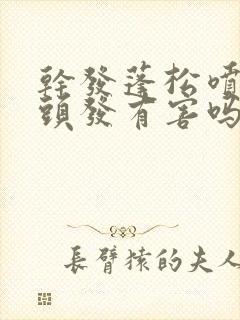 幹發蓬松噴
頭發有害嗎
長臂猿的夫人